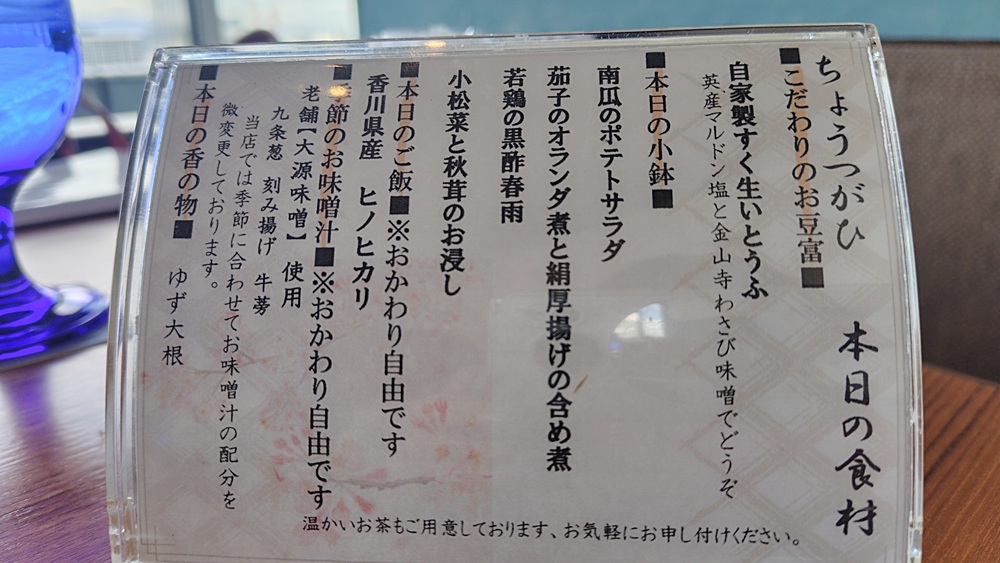 ちょうつがひ 本日の食材
■こだわりのお豆富■
自家製すく生いとうふ
英産マルドン塩と金山寺わさび味噌でどうぞ
■本日の小鉢■
南瓜のポテトサラダ
茄子のオランダ煮と絹厚揚げの含め煮
若鶏の黒酢春雨
小松菜と秋茸のお浸し
■本日のご飯■※おかわり自由です
香川県産 ヒノヒカリ
■季節のお味噌汁■※おかわり自由です
老舗【大源味噌】 使用
九条葱 刻み揚げ 牛蒡
当店では季節に合わせてお味噌汁の配分を
微変更しております。
■本日の香の物■ ゆず大根
温かいお茶もご用意しております、お気軽にお申し付けください。